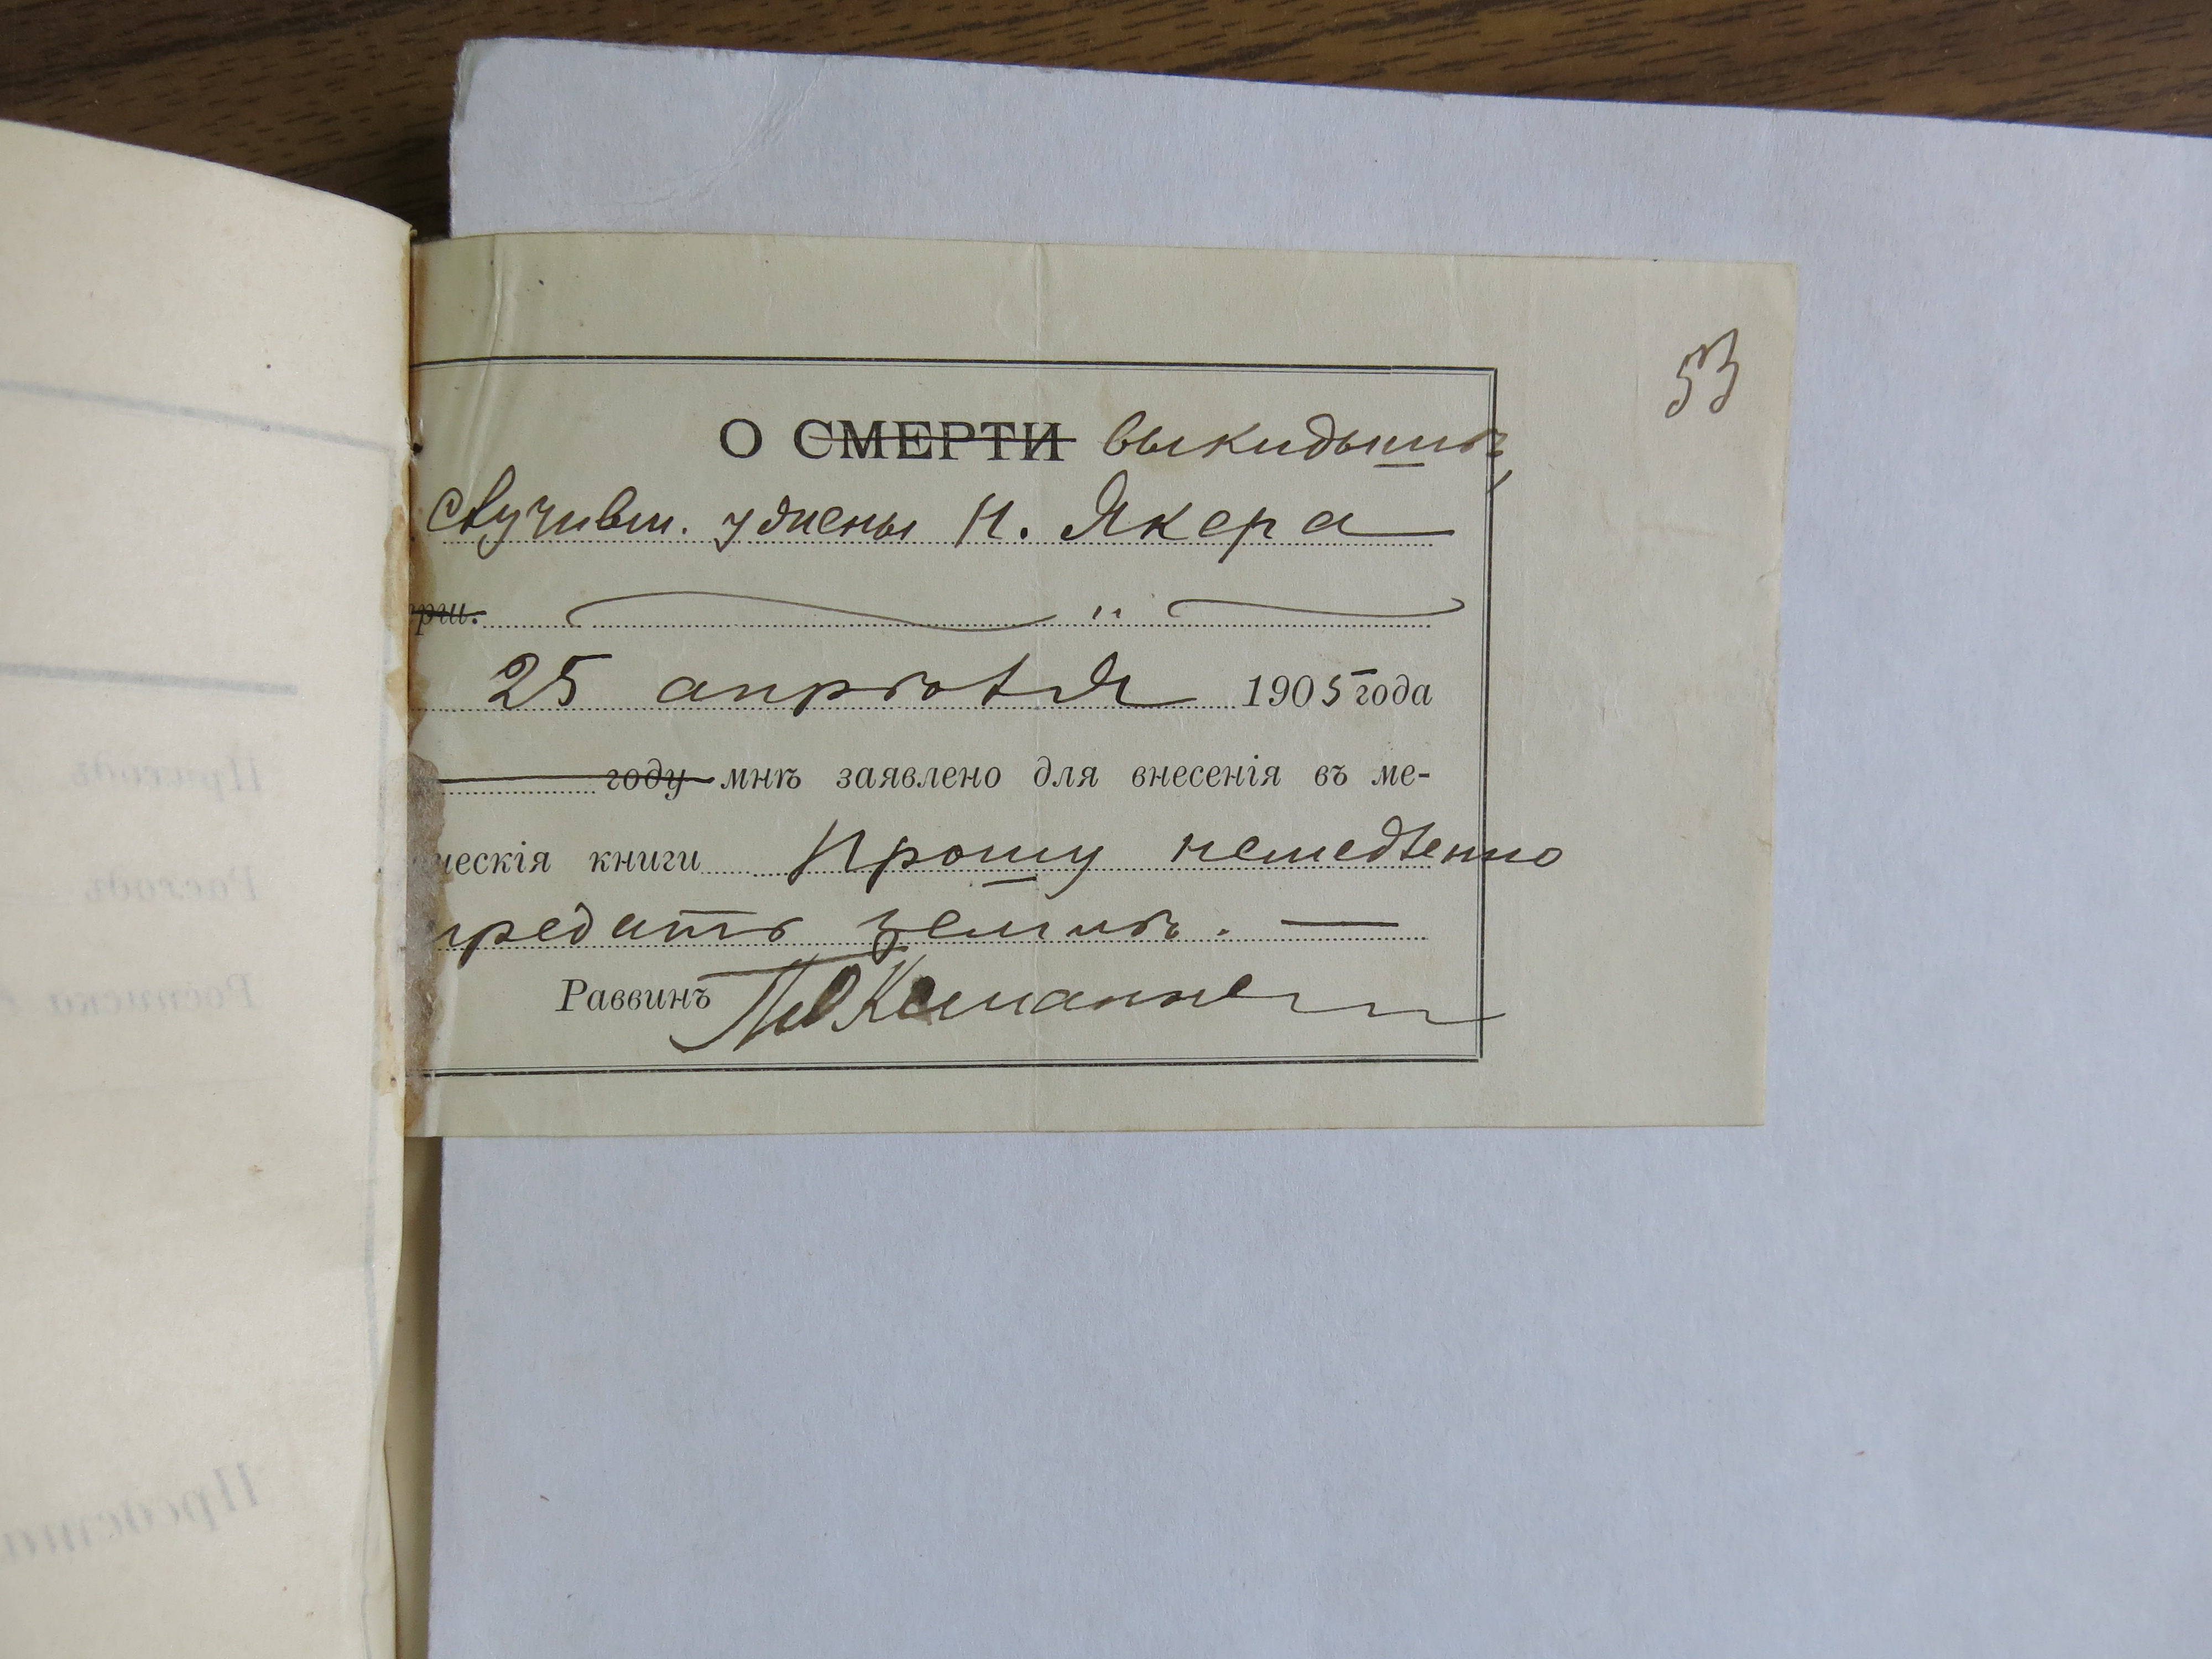 53
О СМЕРТИ выкидышѣ,
случивш. у жены Н. Якера
рти.
25 апрѣля 1905 года
году мнѣ заявлено для внесенія въ ме-
ческія книги Прошу немедленно
предать землѣ. —
Раввинъ
Приходъ
Расходъ
Росписка